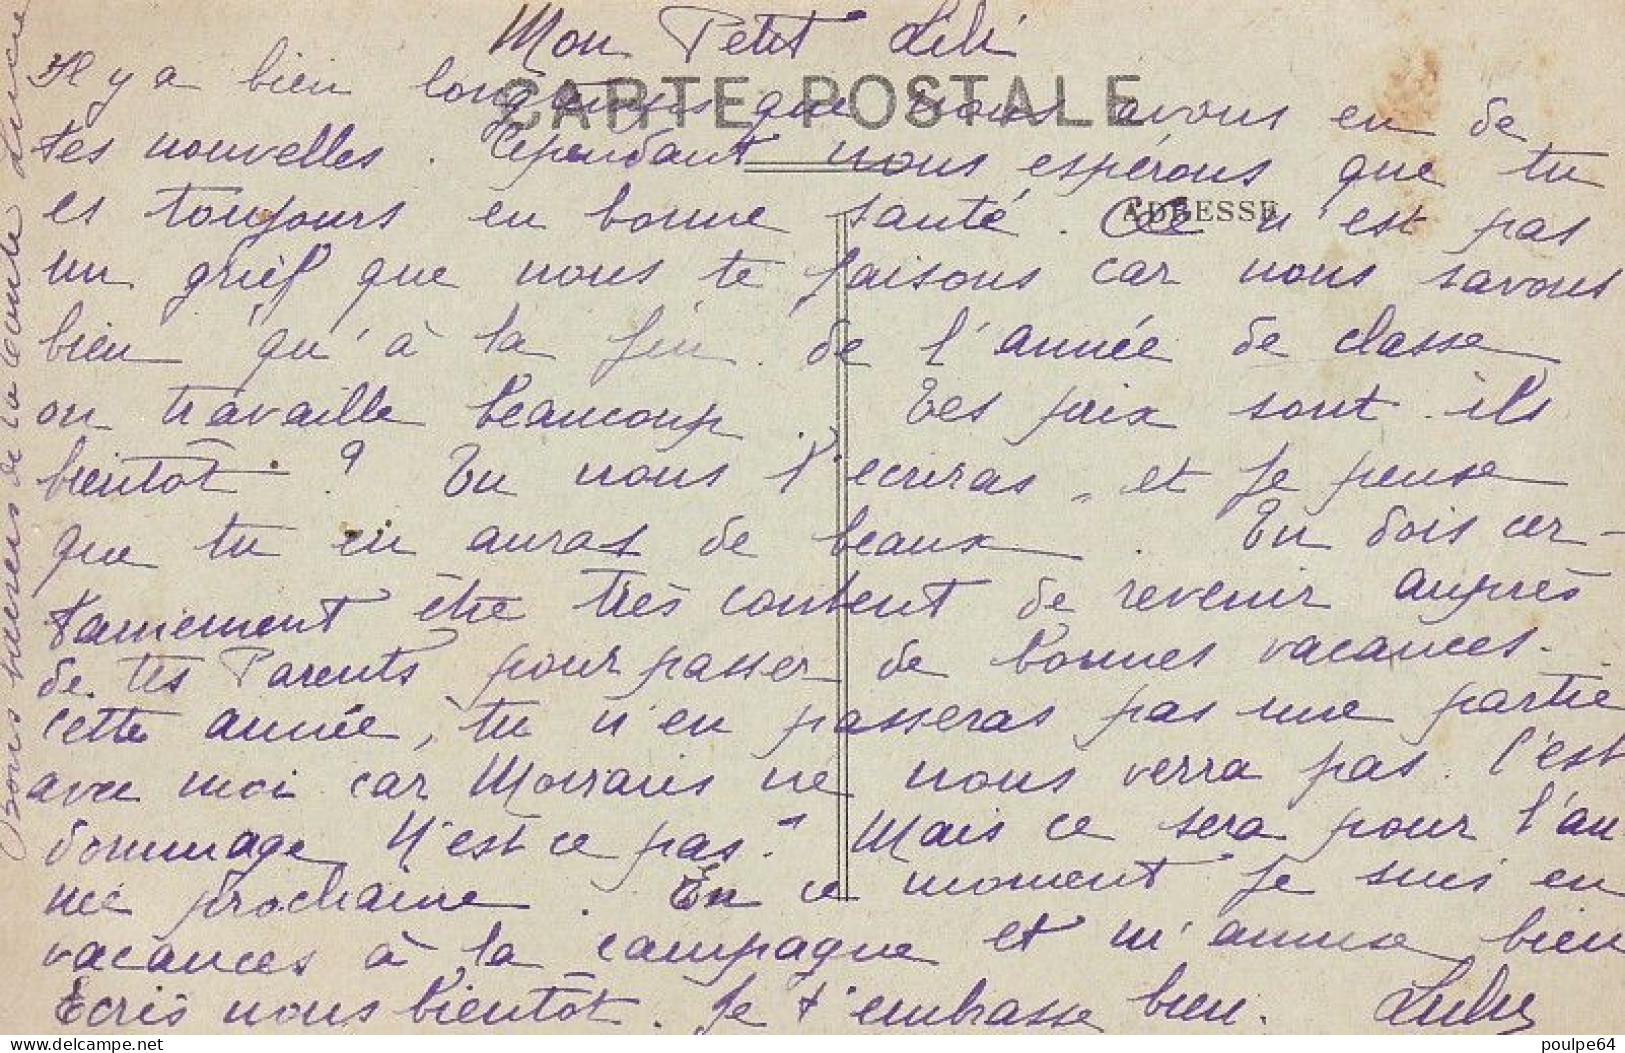 Mon Petit Lili
CARTE POSTALE
Il y a bien longtemps que nous avons eu de
tes nouvelles. Cependant nous espérons que tu
ADRESSE
es toujours en bonne santé. Ce n'est pas
un grief que nous te faisons car nous savons
bien qu'à la fin de l'année de classe
on travaille beaucoup. Tes prix sont-ils
bientôt ? Tu nous l'ecriras, et je pense
que tu en auras de beaux. Tu dois cer-
tainement être très content de revenir auprès
de tes Parents, pour passer de bonnes vacances.
cette année, tu n'en passeras pas une partie
avec moi car ne nous verra pas. C'est
dommage N'est ce pas? Mais ce sera pour l'an
née prochaine. En ce moment je suis en
vacances à la campagne et m'amuse bien
Ecris nous bientôt. Je t'embrasse bien.
Bons baisers de la
delcampe.net
poulpe64